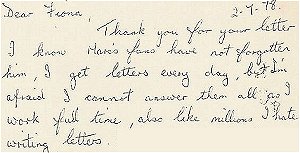 Dear Fiona, 2-7-78.
Thank you for your letter
I know Marc's fans have not forgotten
him, I get letters every day, but I'm
afraid I cannot answer them all as I
work full time, also like millions I hate
writing letters.